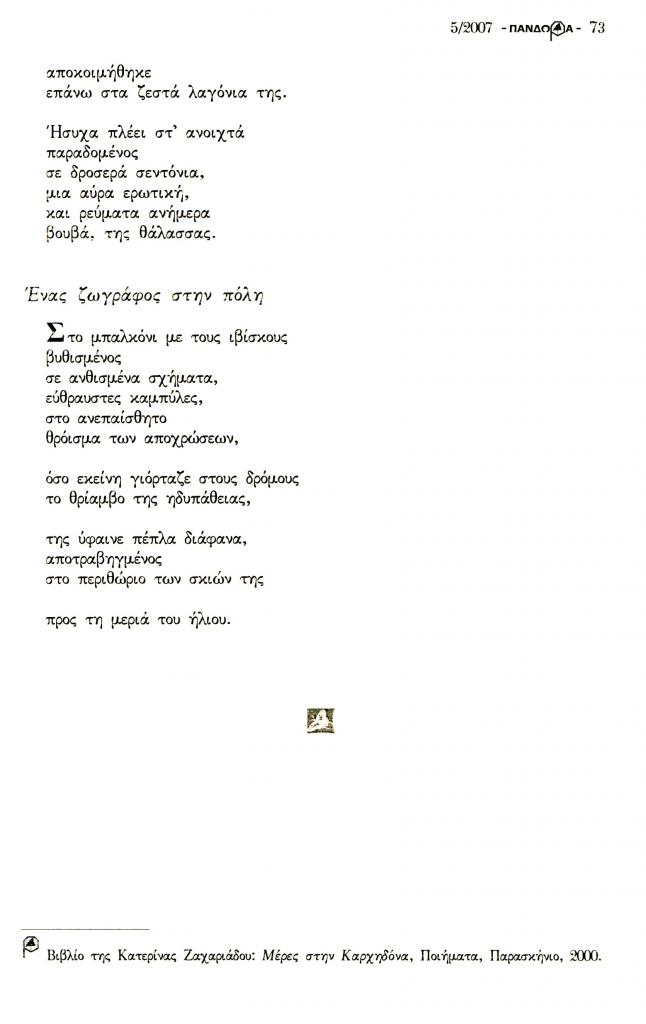 5/2007 -ΠΑΝΔΟΡΑ- 73
αποκοιμήθηκε
επάνω στα ζεστά λαγόνια της.
Ήσυχα πλέει στ’ ανοιχτά
παραδομένος
σε δροσερά σεντόνια,
μια αύρα ερωτική,
και ρεύματα ανήμερα
βουβά, της θάλασσας.
Ένας ζωγράφος στην πόλη
Στο μπαλκόνι με τους ιβίσκους
βυθισμένος
σε ανθισμένα σχήματα,
εύθραυστες καμπύλες,
στο ανεπαίσθητο
θρόισμα των αποχρώσεων,
όσο εκείνη γιόρταζε στους δρόμους
το θρίαμβο της ηδυπάθειας,
της ύφαινε πέπλα διάφανα,
αποτραβηγμένος
στο περιθώριο των σκιών της
προς τη μεριά του ήλιου.
Βιβλίο της Κατερίνας Ζαχαριάδου: Μέρες στην Καρχηδόνα, Ποιήματα, Παρασκήνιο, 2000.